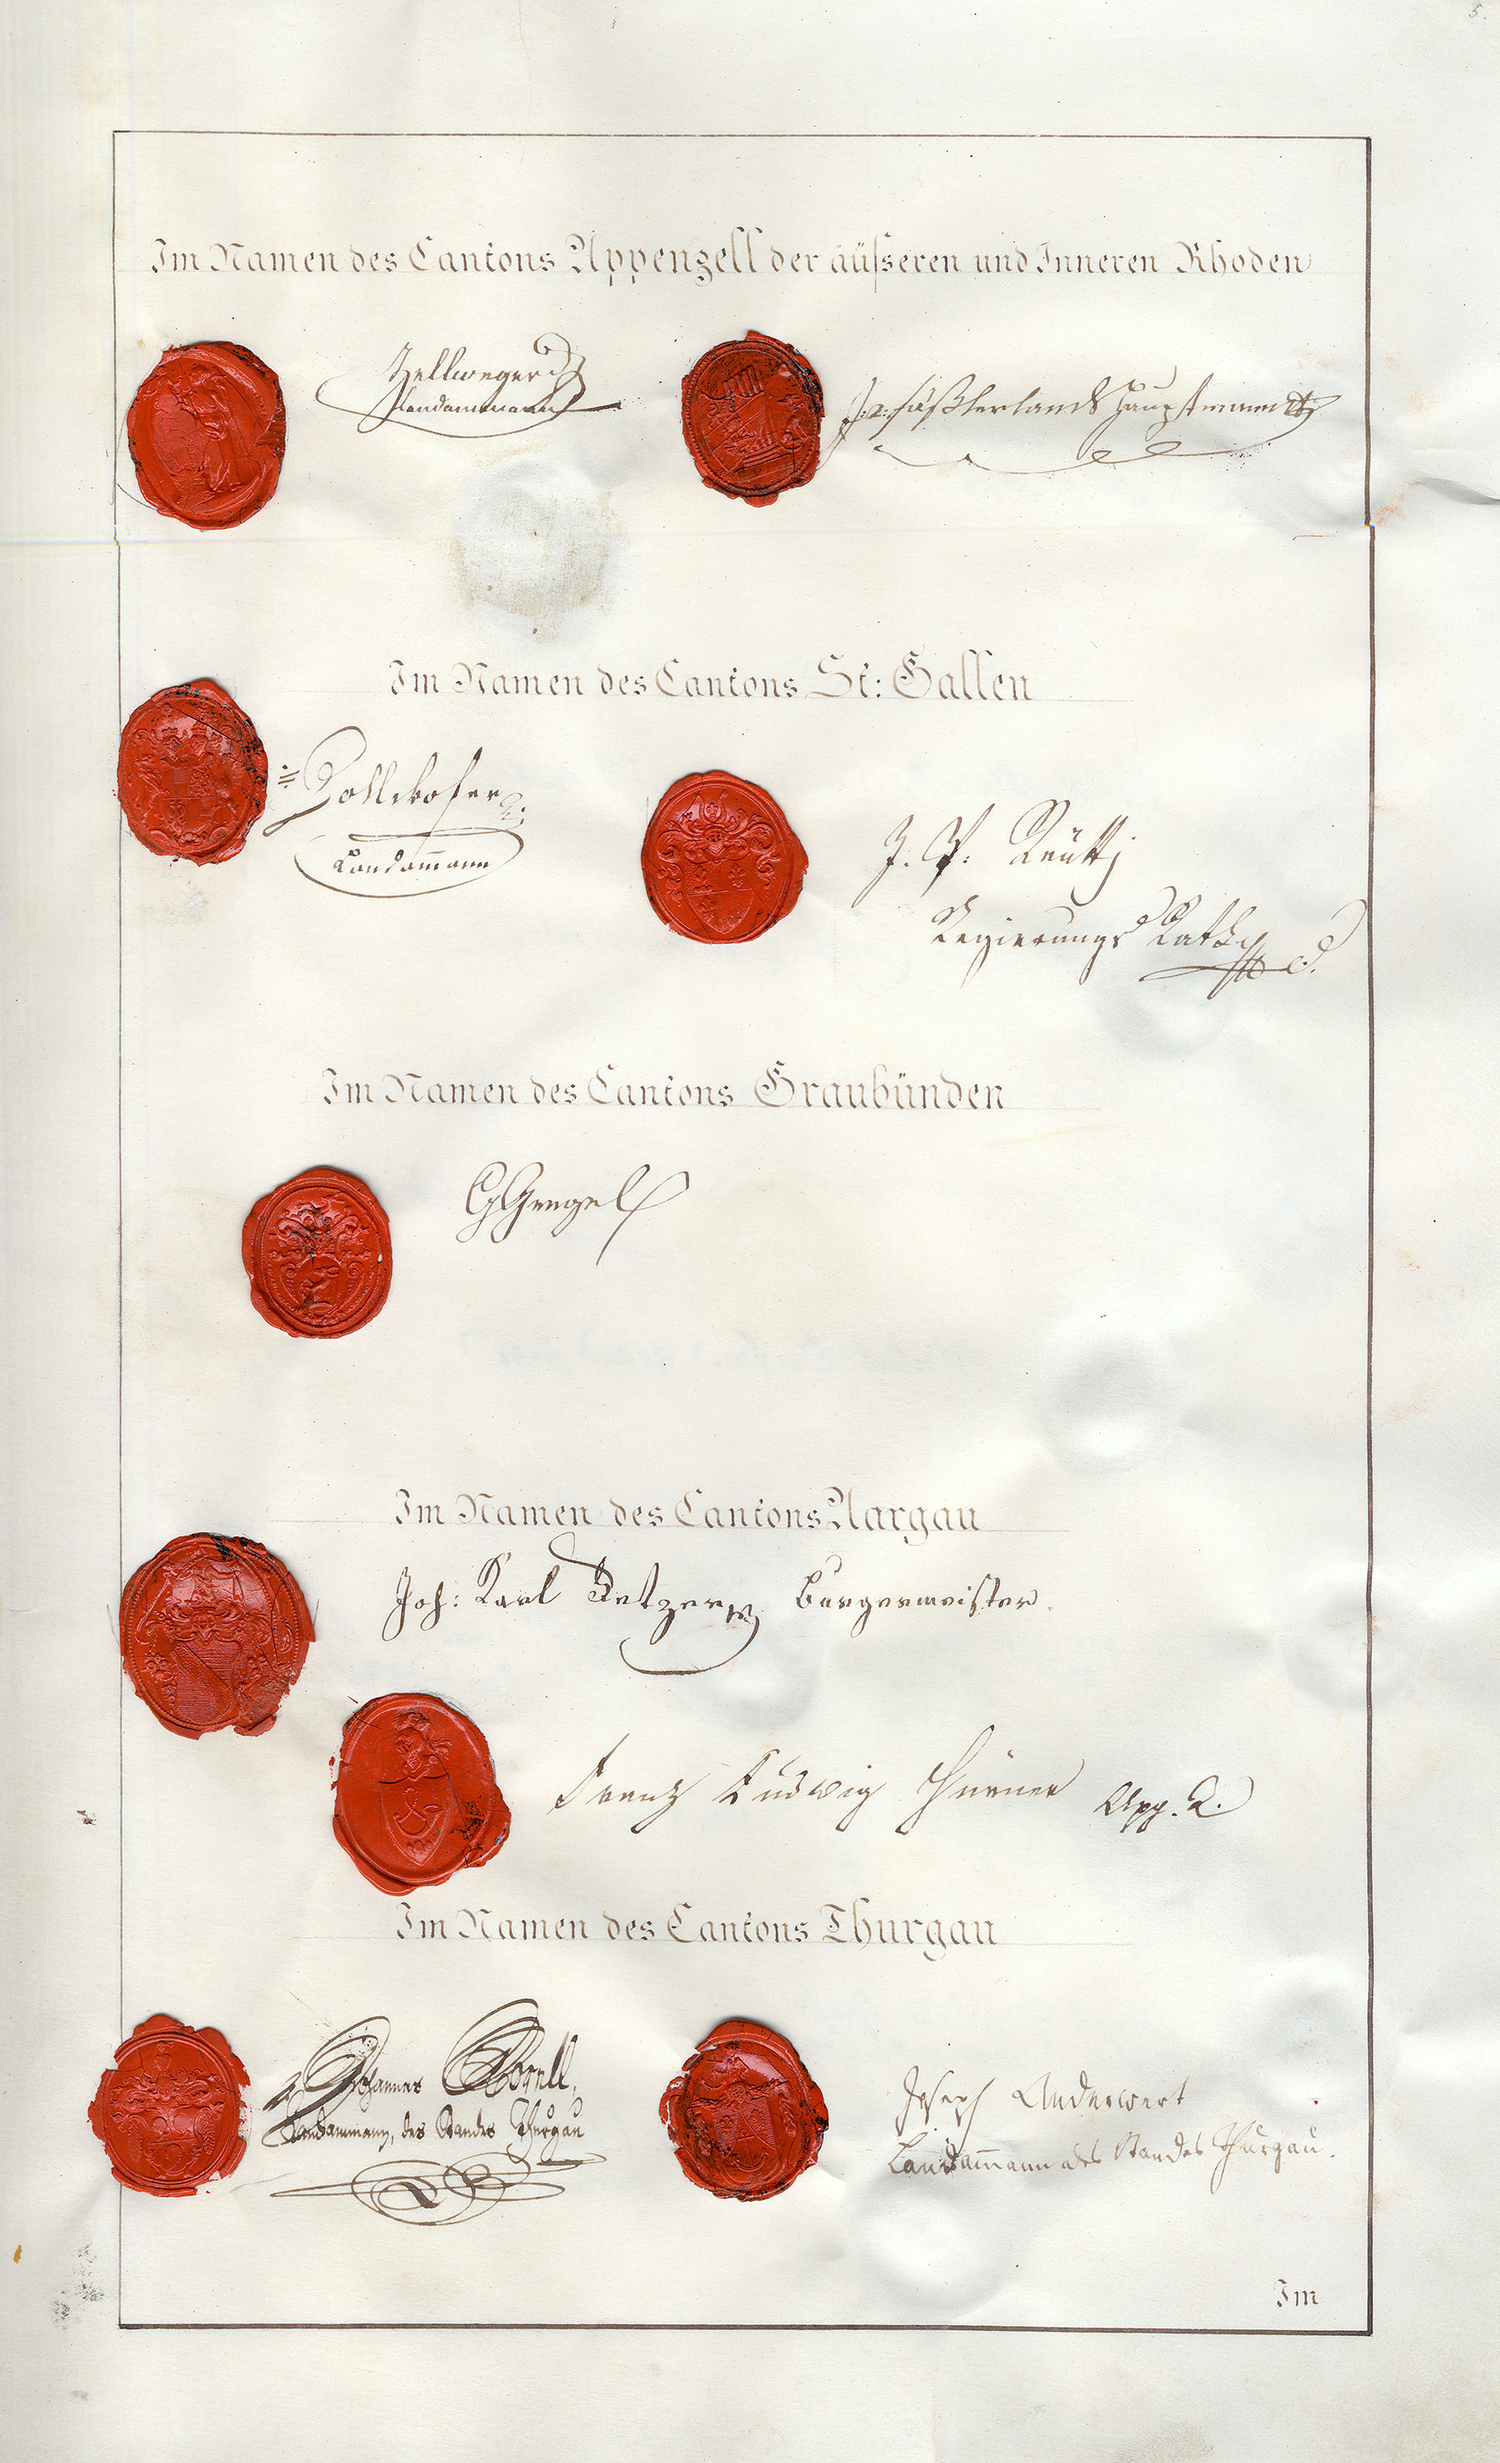 5.
Im Namen des Cantons Appenzell der äüsseren und Inneren Rhoden
Zellweger
Landammann
Landshauptmann
Im Namen des Cantons St: Gallen
Zollikofer
Landam̄ann
J. P. Reütti
Regierungs Rath
Im Namen des Cantons Graubünden
Gengel
Im Namen des Cantons Aargau
Joh: Karl Fetzer Burgermeister.
Franz Ludwig Hürner App. R.
Im Namen des Cantons Thurgau
Johannes Morell,
Landammann, des Standes Thurgau
Joseph Anderwert
Landam̄ann des Standes Thurgau.
Im